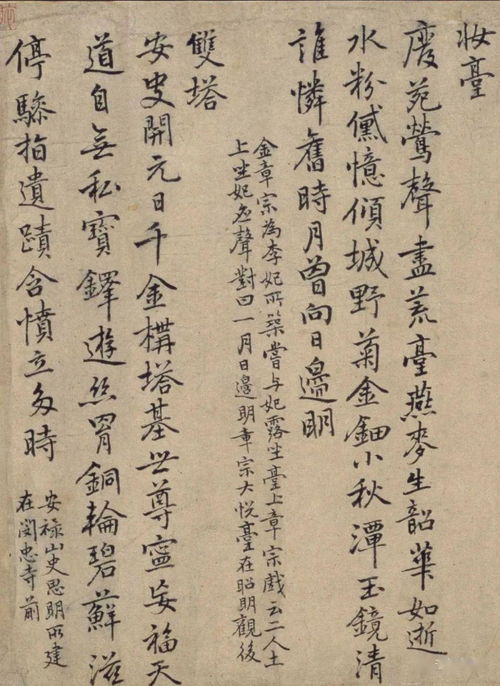 妝臺
廢苑鶯聲盡荒臺燕麥生韶華如逝
水粉黛憶傾城野菊金鈿小秋潭玉鏡清
誰憐舊時月曾向日邊明
金章宗為李妃所築嘗與妃露坐臺上章宗戲云二人土
上坐妃應聲對曰一月日邊明章宗大悅臺在昭明觀後
雙塔
安史開元日千金構塔基世尊寧妄福天
道自無私寶鐸遊絲罥銅輪碧蘚滋
停驂指遺蹟含憤立多時
安祿山史思明所建
在閔忠寺前